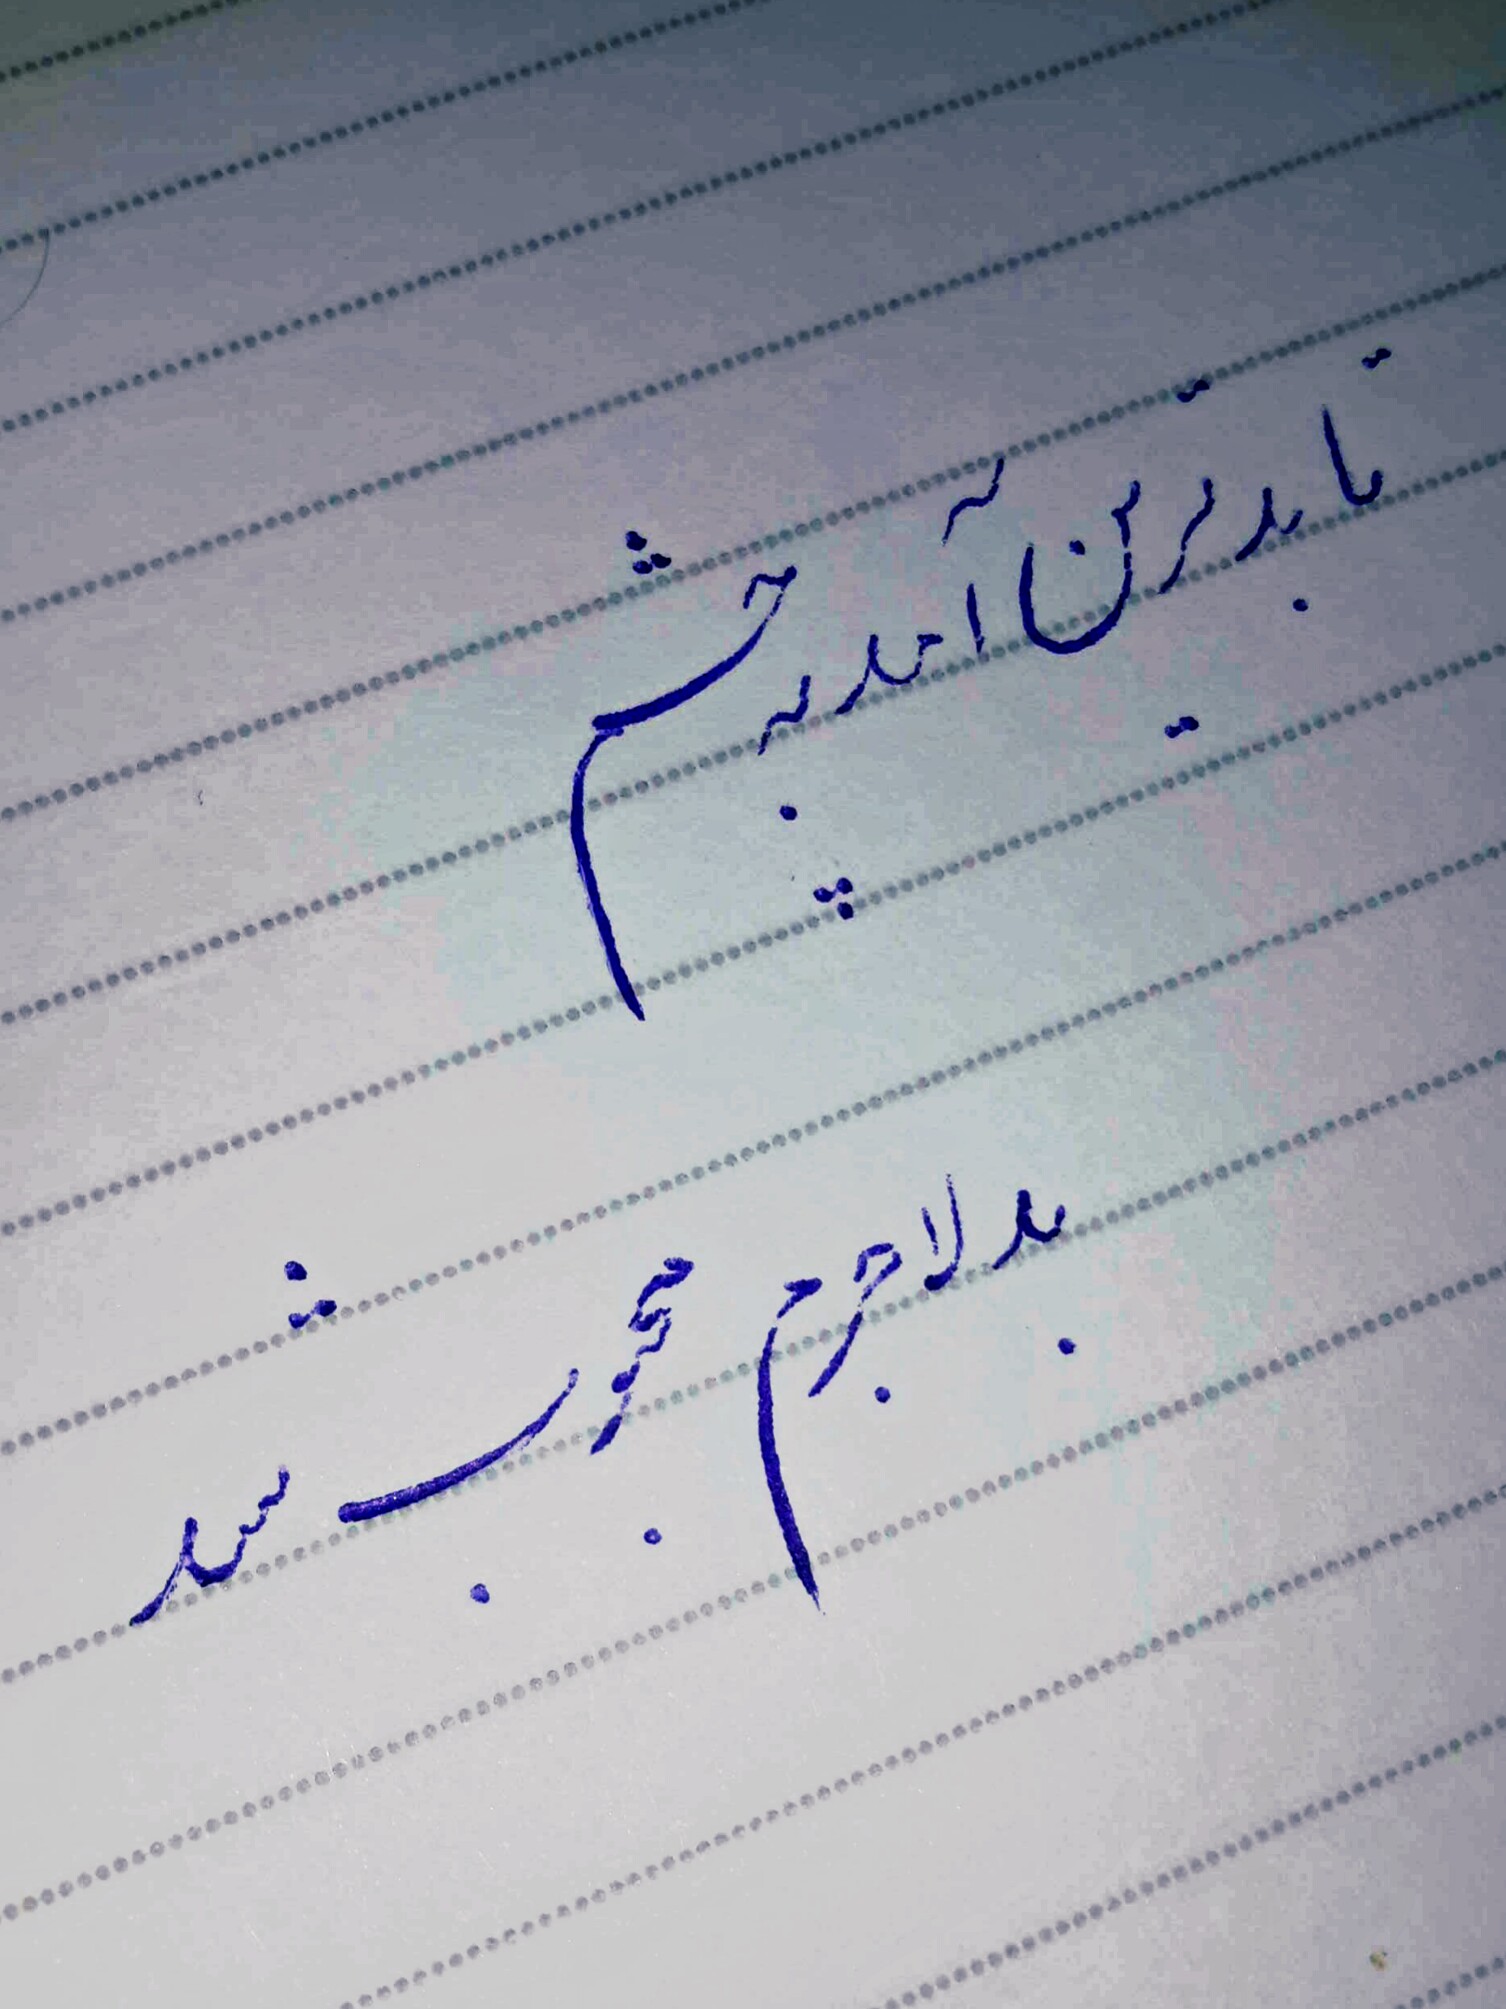 تا بدترین آمد به چشم
بد لاجرم محبوب شد